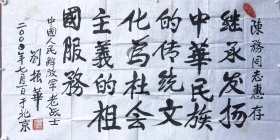 陳務同志惠存
继承发扬
中華民族
的传统文
化為社会
主義的祖
國服務
中國人民解放军老战士
劉振華
二〇〇〇年七月一日于北京